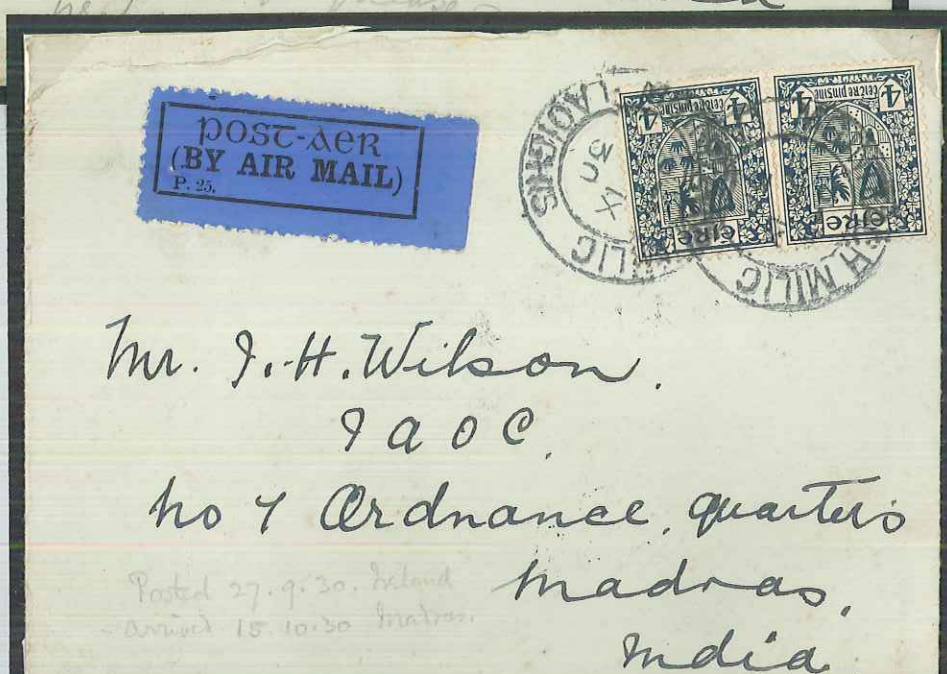 POST-AER
(BY AIR MAIL)
P. 25.
4 ceiṫre pinsine 4
éire
4 ceiṫre pinsine 4
éire
LAOIGHIS
30
IX
MILIC
H MILIC
Mr. J. H. Wilson.
I A O C
No 7 Ordnance, quarters
Madras,
India
Posted 27.9.30. Ireland
arrived 15.10.30 Madras.